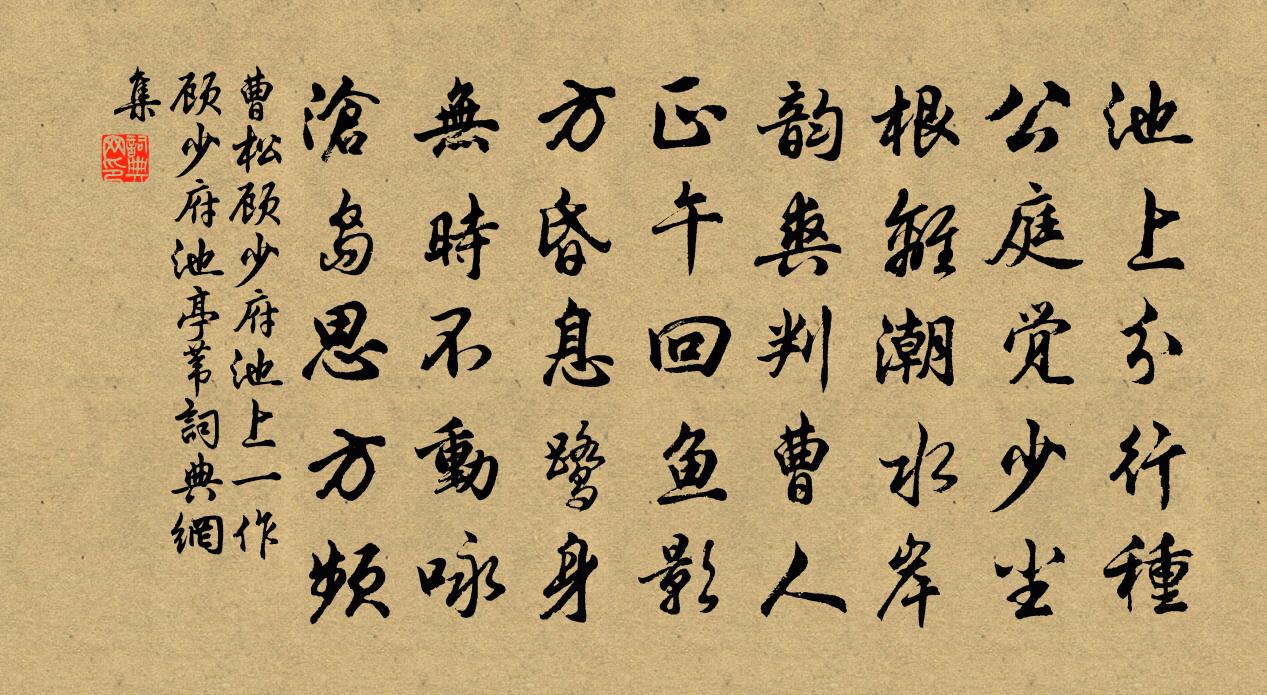 池上分行種
公庭觉少尘
根離潮水岸
韵爽判曹人
正午回鱼影
方昏息鹭身
無時不動咏
滄岛思方频
曹松顾少府池上一作
顾少府池亭苇詞典網
集
詞典网印